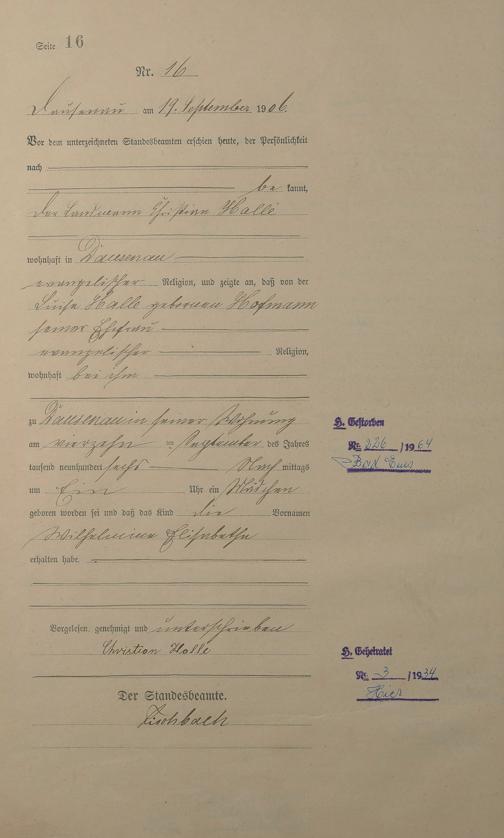 Seite 16
Nr. 16
Dausenau am 19. September 1906.
Vor dem unterzeichneten Standesbeamten erschien heute, der Persönlichkeit
nach
be kannt,
der Landmann Christian Halle
wohnhaft in Dausenau
evangelischer Religion, und zeigte an, daß von der
Luise Halle geborenen Hofmann
seiner Ehefrau
evangelischer Religion,
wohnhaft bei ihm
zu Dausenau in seiner Wohnung
am vierzehn ten September des Jahres
tausend neunhundert sechs Nach mittags
um Ein Uhr ein Mädchen
geboren worden sei und daß das Kind die Vornamen
Wilhelmine Elisabethe
erhalten habe.
Vorgelesen, genehmigt und unterschrieben
Christian Halle
Der Standesbeamte.
Fischbach
H. Gestorben
Nr. 226 /1964
Bad Ems
H. Geheiratet
Nr. 3 /1934
Hier